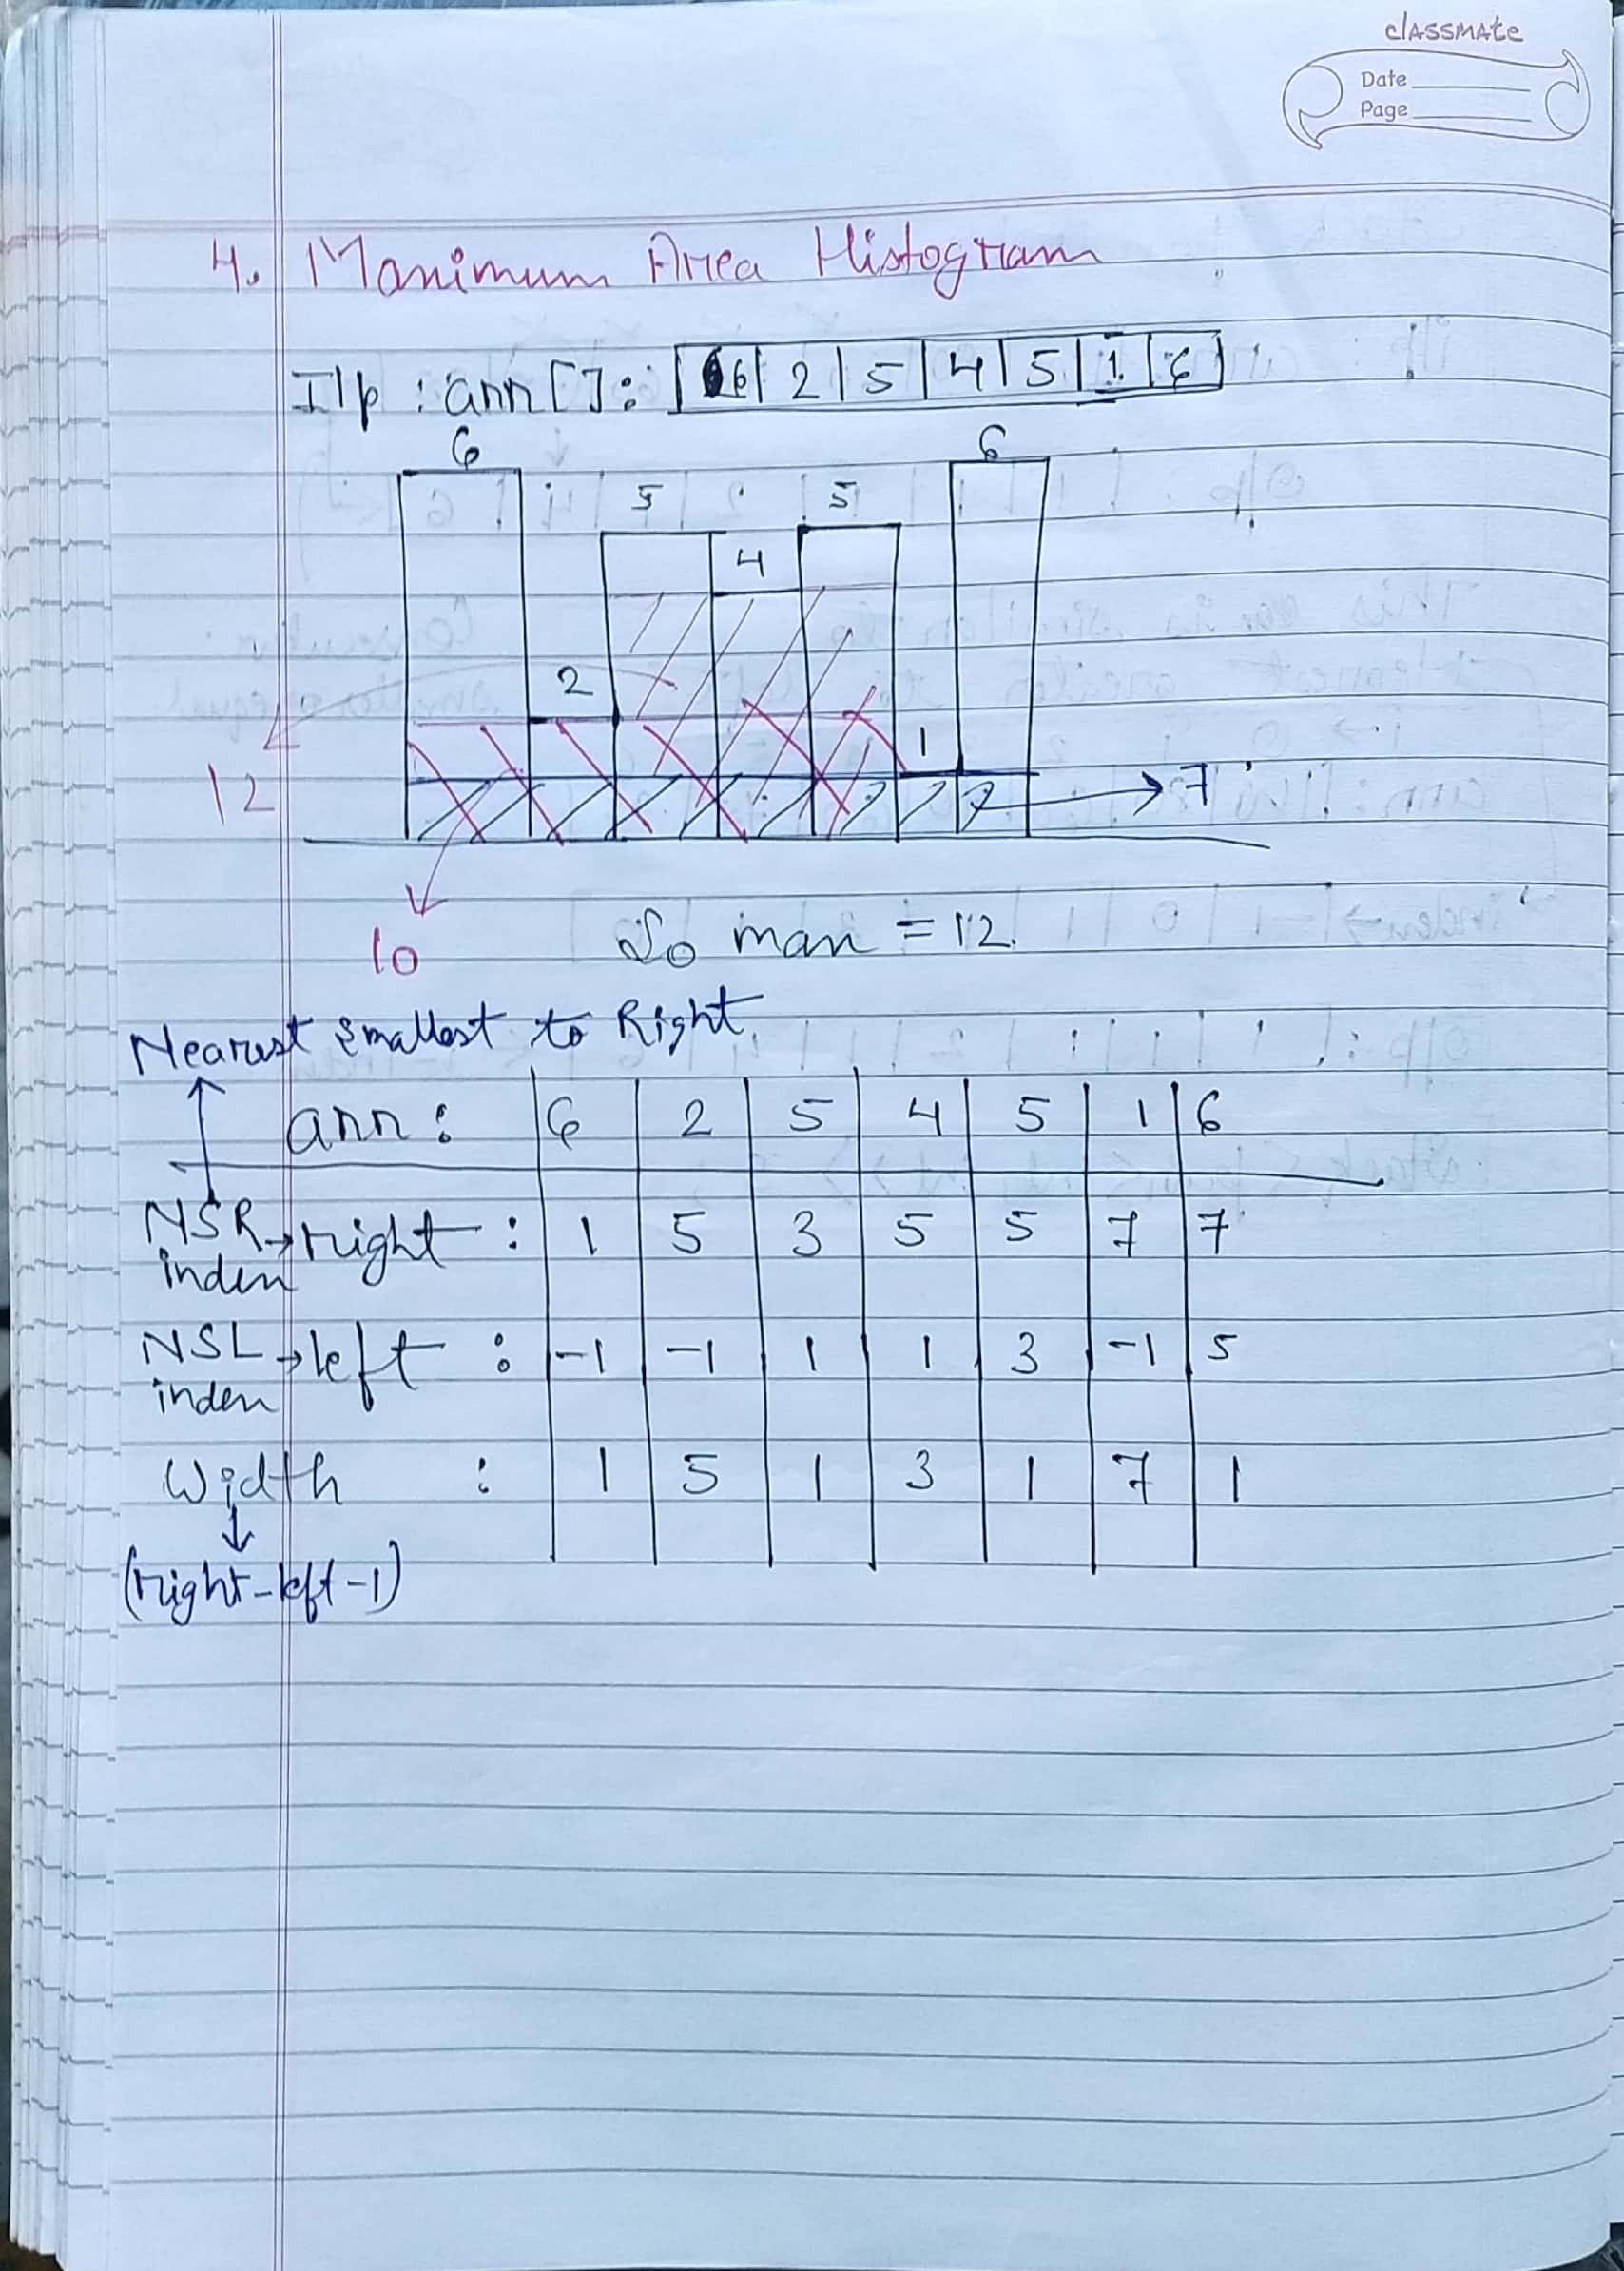 classmate
Date
Page
4. Maximum Area Histogram
I/p : arr[]: 6 2 5 4 5 1 6
6 6
5 5
4
2
1
7
12
10
So max = 12.
Nearest smallest to Right
arr : 6 2 5 4 5 1 6
NSR → right : 1 5 3 5 5 7 7
index
NSL → left : -1 -1 1 1 3 -1 5
index
Width : 1 5 1 3 1 7 1
(right-left-1)